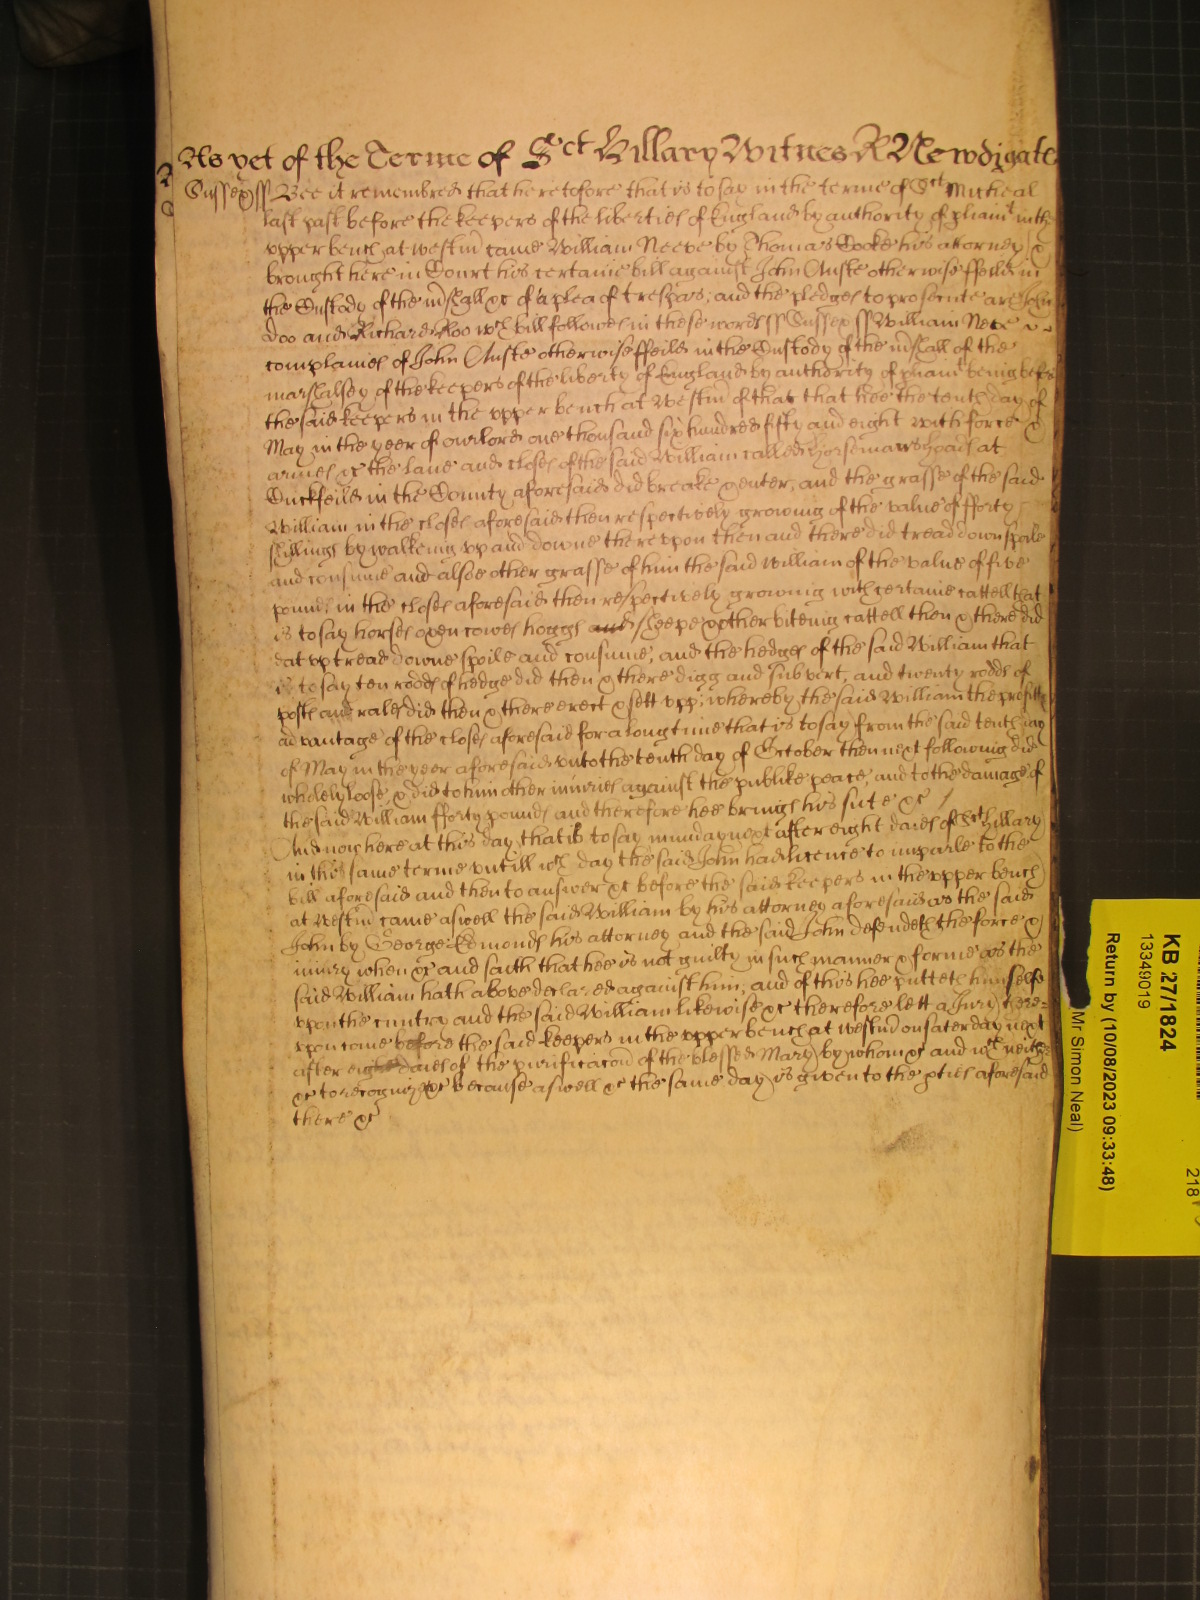 As yet of the Terme of Sct Hillary Witnes R Newdigate
Sussex ss Bee it remembred that heretofore that is to say in the terme of Sct Micheal
last past before the keepers of the liberties of England by authority of pliamt in the
vpper bench at westm came William Neeve by Thomas Cooke his attorney &
brought here in Court his certaine bill against John Anste otherwise ffeilds in
the Custody of the mshall &c of a plea of trespas; and the pledges to prosecute are John
Doo and Richard Roo wch bill followes in these words ss Sussex ss William Neve
complaines of John Anste otherwise ffeilds in the Custody of the mshall of the
marshalsey of the keepers of the liberty of England by authority of pliamt being before
the said keepers in the vpper bench at westm of that that hee the tenth day of
May in the yeer of our lord one thousand six hundred fifty and eight with force &
armes &c the lane and closes of the said William called Horsemans Hoads at
Cuckfeild in the County aforesaid did breake & enter, and the grasse of the said
William in the closes aforesaid then respectively growing of the value of fforty
shillings by walkeing vp and downe there vpon then and there did tread down spoile
and consume and alsoe other grasse of him the said William of the value of five
pounds in the closes aforesaid then respectively growing with certaine cattell that
is to say horses oxen cowes hoggs and sheepe & other biteing cattell then & there did
eat vp tread downe spoile and consume; and the hedges of the said William that
is to say ten rodds of hedge did then & there digg and subvert, and twenty rodds of
posts and rales did then & there erect & sett vpp; whereby the said William the profitt &
advantage of the closes aforesaid for a long time that is to say from the said tenth day
of May in the yeer aforesaid vnto the tenth day of October then next following did
wholely loose; & did to him other iniuries against the publike peace; and to the damage of
the said William fforty pounds and therefore hee brings his suite &c
And now here at this day that is to say munday next after eight daies of Sct Hillary
in this same terme vntill wch day the said John had licence to imparle to the
bill aforesaid and then to answer &c before the said keepers in the vpper bench
at westm came aswell the said William by his attorney aforesaid as the said
John by George Edmonds his attorney and the said John defendeth the force &
iniury when &c and saith that hee is not guilty in such manner & forme as the
said William hath above declared against him; and of this hee putteth himselfe
vpon the cuntry and the said William likewise &c therefore lett a Jury there=
vpon come before the said keepers in the vpper bench at westm on saterday next
after eight daies of the purificacon of the blessed Mary by whom &c and wch neither
&c to recognize &c because aswell &c the same day is given to the pties aforesaid
there &c
KB 27/1824
13349019
Return by (10/08/2023 09:33:48)
Mr Simon Neal)